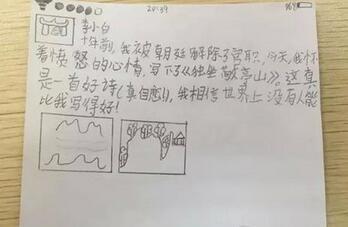 20:39
96%
李小白
十年前，我被朝廷解除了官职，今天，我怀
着愤怒的心情，写下了《独坐敬亭山》。这真
是一首好诗（真自恋），我相信世界上没有人能
比我写得好！